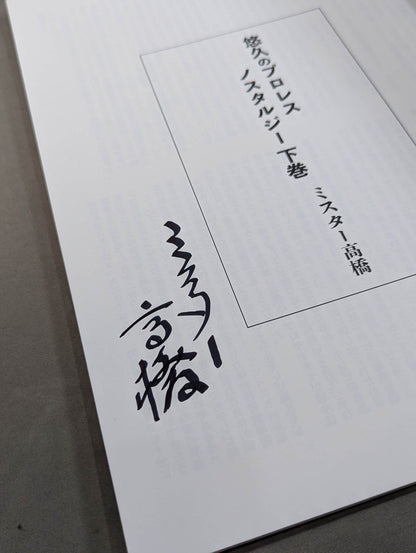 悠久のプロレス
ノスタルジー下巻
ミスター高橋
ミスター
高橋